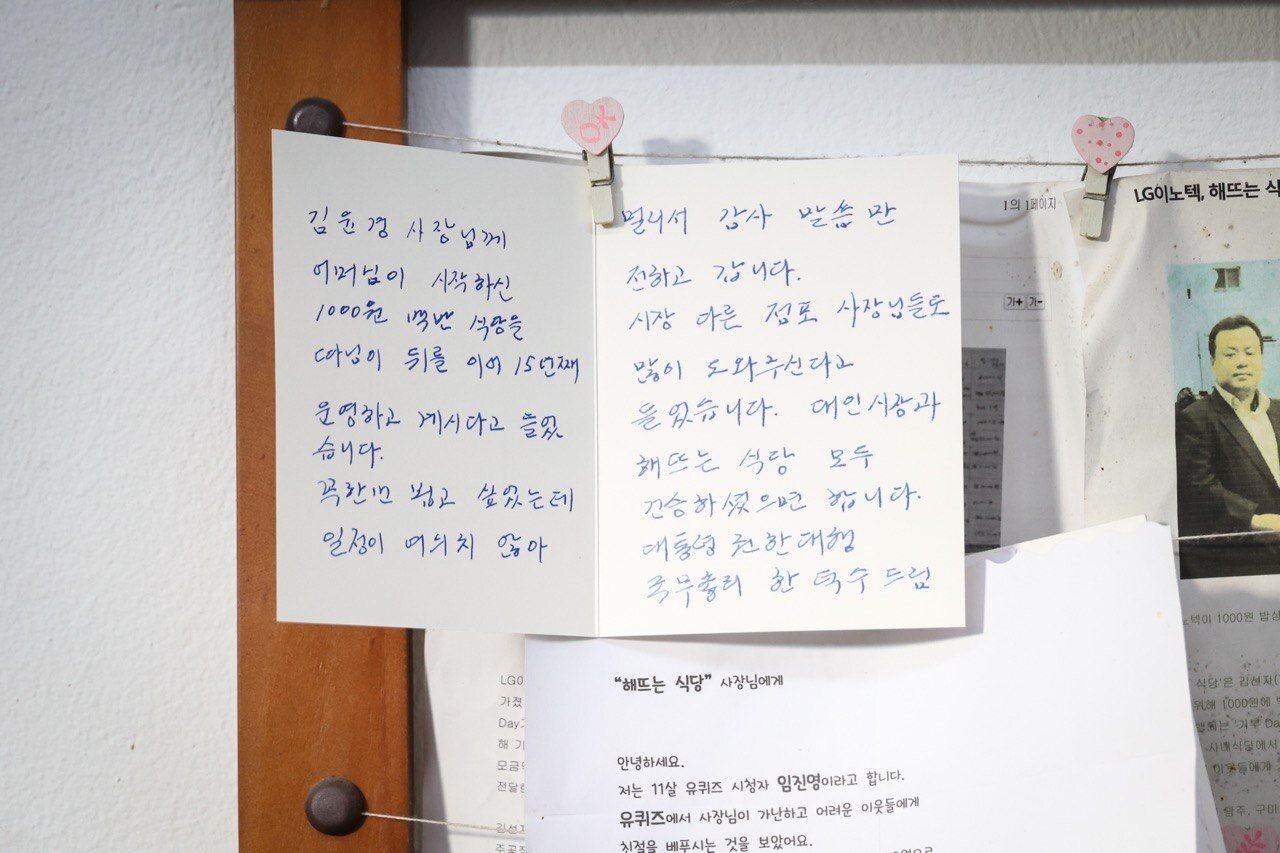 김윤경 사장님께
어머님이 시작하신
1000원 백반 식당을
따님이 뒤를 이어 15년째
운영하고 계시다고 들었
습니다.
꼭 한번 뵙고 싶었는데
일정이 여의치 않아
멀리서 감사 말씀만
전하고 갑니다.
시장 다른 점포 사장님들도
많이 도와주신다고
들었습니다. 대인시장과
해뜨는 식당 모두
건승하셨으면 합니다.
대통령 권한대행
국무총리 한덕수 드림
OK
1의 1페이지
가+ 가-
LG이노텍, 해뜨는 식
“해뜨는 식당” 사장님에게
안녕하세요.
저는 11살 유퀴즈 시청자 임진영이라고 합니다.
유퀴즈에서 사장님이 가난하고 어려운 이웃들에게
친절을 베푸시는 것을 보았어요.
LG이
가졌
Day
해 기
모금
전달한
김선자
노텍이 1000원 밥상
식당'은 김선자(
위해 1000원에
사내식당에서
이웃들에게
광주, 구미